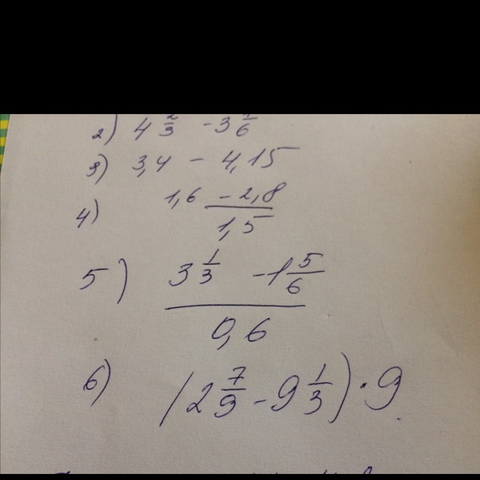 2) 4 2/3 - 3 1/6
3) 3,4 - 4,15
4) (1,6 - 2,8)/1,5
5) (3 1/3 - 1 5/6)/0,6
6) (2 7/9 - 9 1/3) · 9